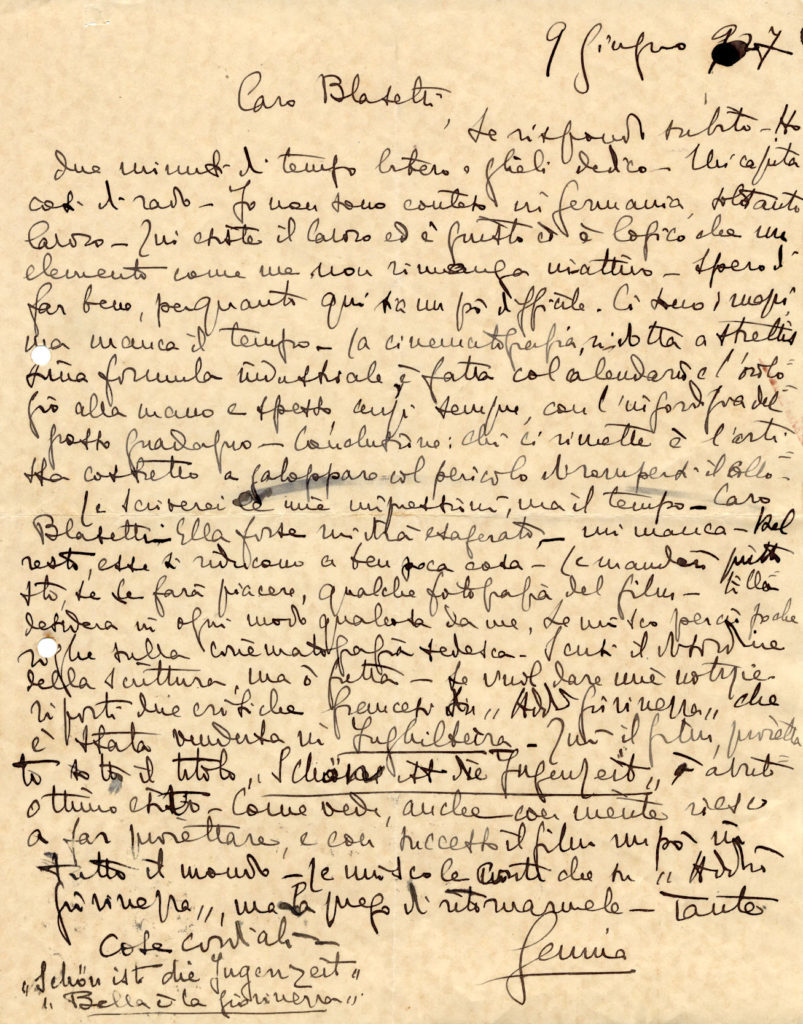 9 giugno 927
Caro Blasetti,
Le rispondo subito - Ho
due minuti di tempo libero e glieli dedico - Mi capita
così di rado - Io non sono contento in Germania, soltanto
lavoro - Qui esiste il lavoro ed è giusto ed è logico che un
elemento come me non rimanga inattivo - Spero di
far bene, perquanto qui sia un pò difficile. Ci sono i mezzi,
ma manca il tempo - La cinematografia, ridotta a strettis
sima formula industriale, è fatta col calendario e l'orolo-
gio alla mano e spesso, anzi sempre, con l'ingordigia del
grosso guadagno - Conclusione: chi ci rimette è l'arti
sta costretto a galoppare col pericolo di rompersi il collo -
Le scriverei le mie impressioni, ma il tempo - Caro
Blasetti - Ella forse mi dirà esagerato, - mi manca - Del
resto, esse si riducono a ben poca cosa - Le manderò piutto
sto, se Le farà piacere, qualche fotografia del film - Ella
desidera in ogni modo qualcosa da me, Le unisco perciò poche
righe sulla cinematografia tedesca - Scusi il disordine
della scrittura, ma ò fretta - Se vuol dare mie notizie
riporti due critiche francesi su "Addio giovinezza" che
è stata venduta in Inghilterra - Qui il film, proietta
to sotto il titolo "Schön ist die Jugenzeit", à avuto
ottimo esito - Come vede, anche con niente riesco
a far proiettare, e con successo il film un pò in
tutto il mondo - Le unisco le critiche su "Addio
giovinezza", ma La prego di ritornarmele - Tante
cose cordiali -
Genina
"Schön ist die Jugenzeit"
"Bella è la giovinezza"